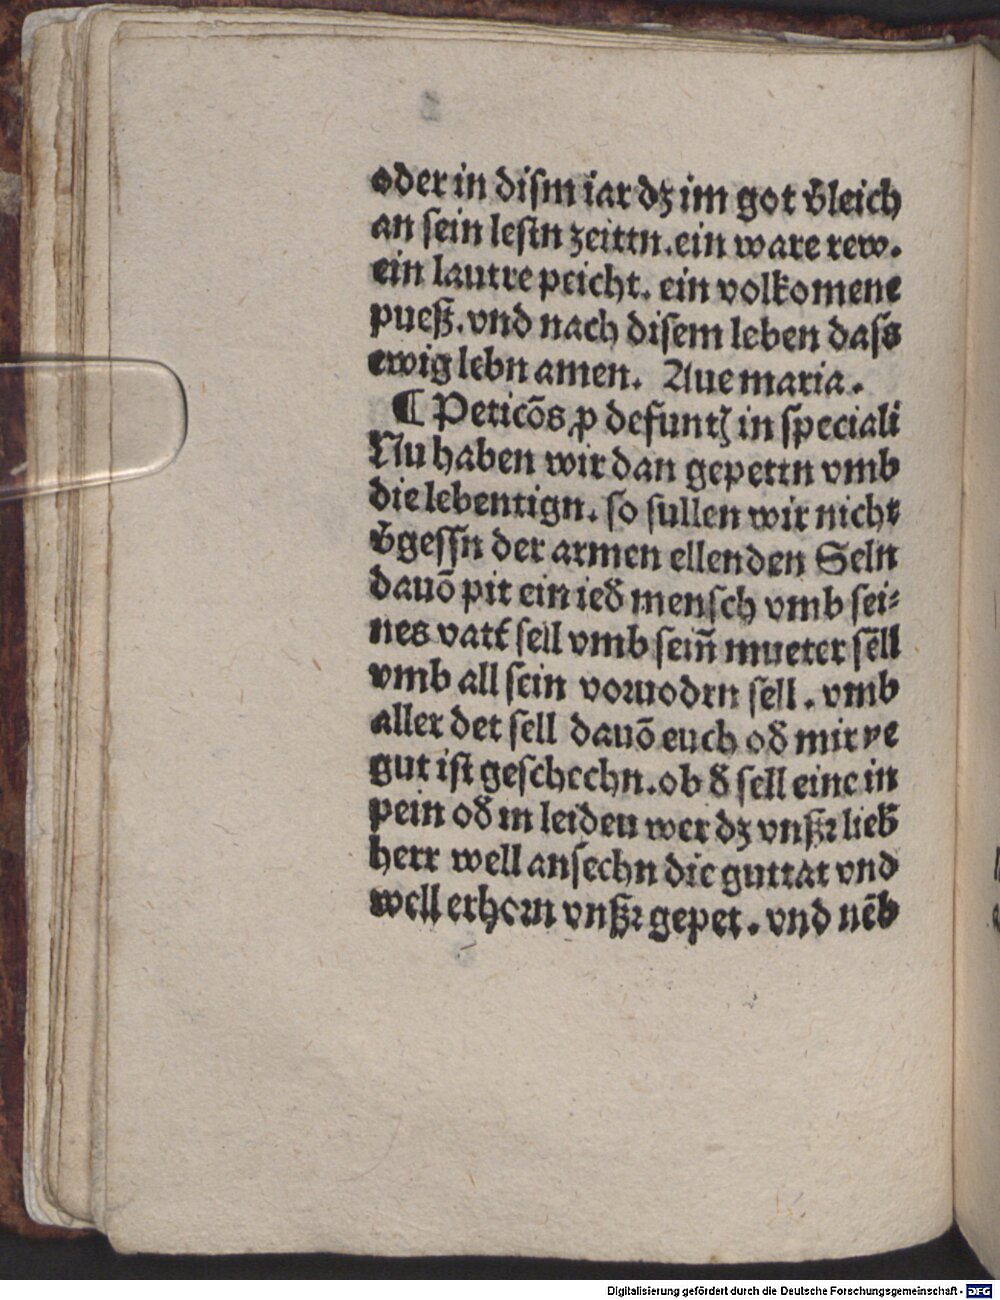 oder in dism iar dz im got v̄leich
an sein lestn zeittn. ein ware rew.
ein lautre peicht. ein volkomene
pueß. vnd nach disem leben dass
ewig lebn amen. Aue maria.
¶ Peticōs ꝓ defuntꝫ in speciali
Nu haben wir dan gepettn vmb
die lebentign. so sullen wir nicht
v̄gessn der armen ellenden Seln
dauō pit ein ied̄ mensch vmb sei⸗
nes vatt̄ sell vmb sein̄ mueter sēll
vmb all sein voruodrn sell. vmb
aller det sell dauō euch od̄ mir ye
gut ist geschechn. ob d̄ sell eine in
pein od̄ in leiden wer dz vnßꝛ lieb̄
herr well ansechn die guttat vnd
well erhorn vnßꝛ gepet. vnd nēb
Digitalisierung gefördert durch die Deutsche Forschungsgemeinschaft - DFG